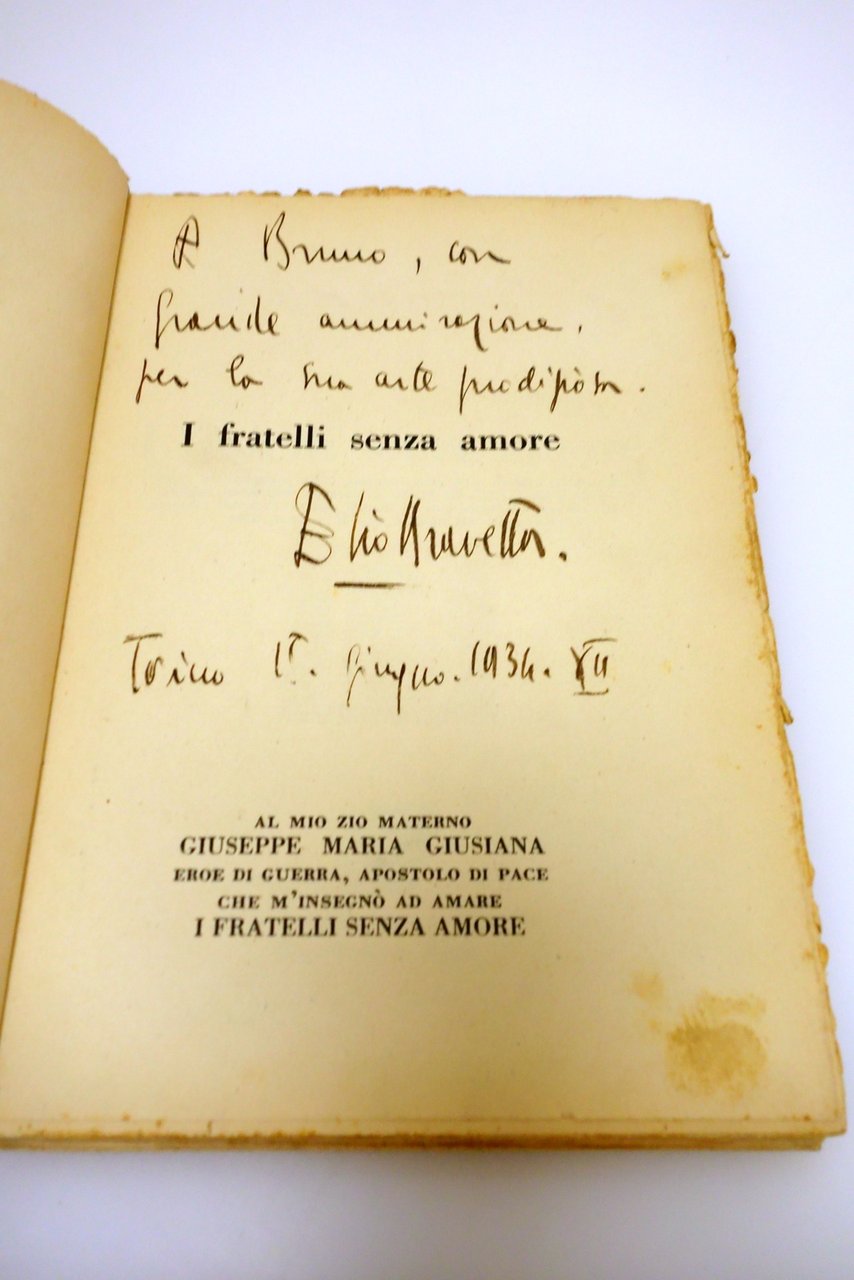 A Bruno, con
grande ammirazione.
per la sua arte prodigiosa.
I fratelli senza amore
Elio
Torino 1º. Giugno. 1934. XII
AL MIO ZIO MATERNO
GIUSEPPE MARIA GIUSIANA
EROE DI GUERRA, APOSTOLO DI PACE
CHE M'INSEGNÒ AD AMARE
I FRATELLI SENZA AMORE